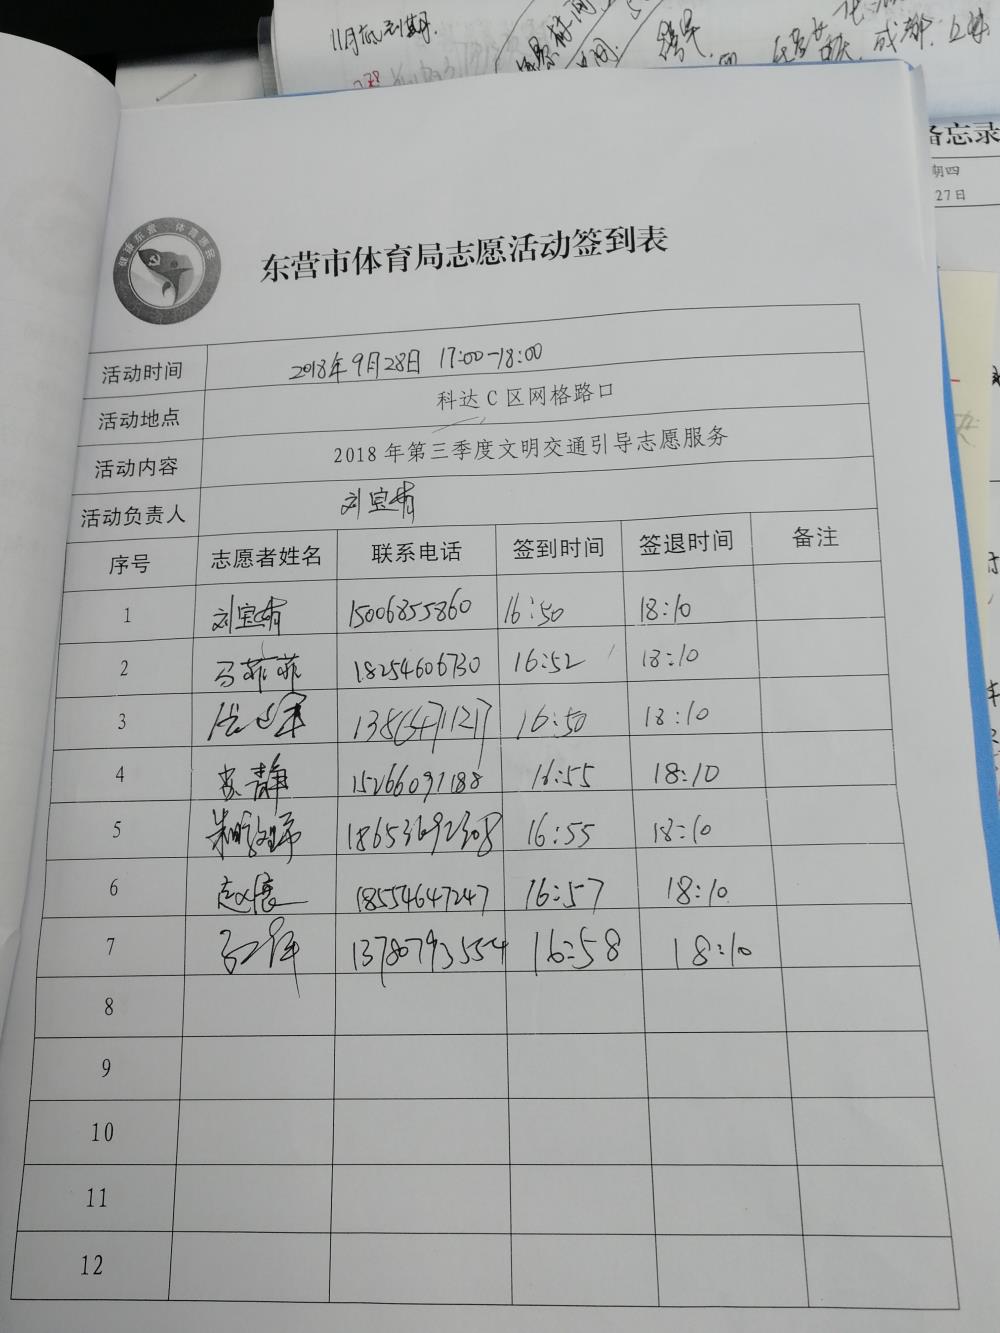 11月
备忘录
期四
27日
东营市体育局志愿活动签到表
活动时间 2018年9月28日 17:00-18:00
活动地点 科达C区网格路口
活动内容 2018年第三季度文明交通引导志愿服务
活动负责人 刘宝婧
序号 志愿者姓名 联系电话 签到时间 签退时间 备注
1 刘宝婧 15006855860 16:50 18:10
2 马菲菲 18254606730 16:52 18:10
3 16:50 18:10
4 静 15266091188 16:55 18:10
5 18653692308 16:55 18:10
6 赵 18554647247 16:57 18:10
7 13780793554 16:58 18:10
8
9
10
11
12